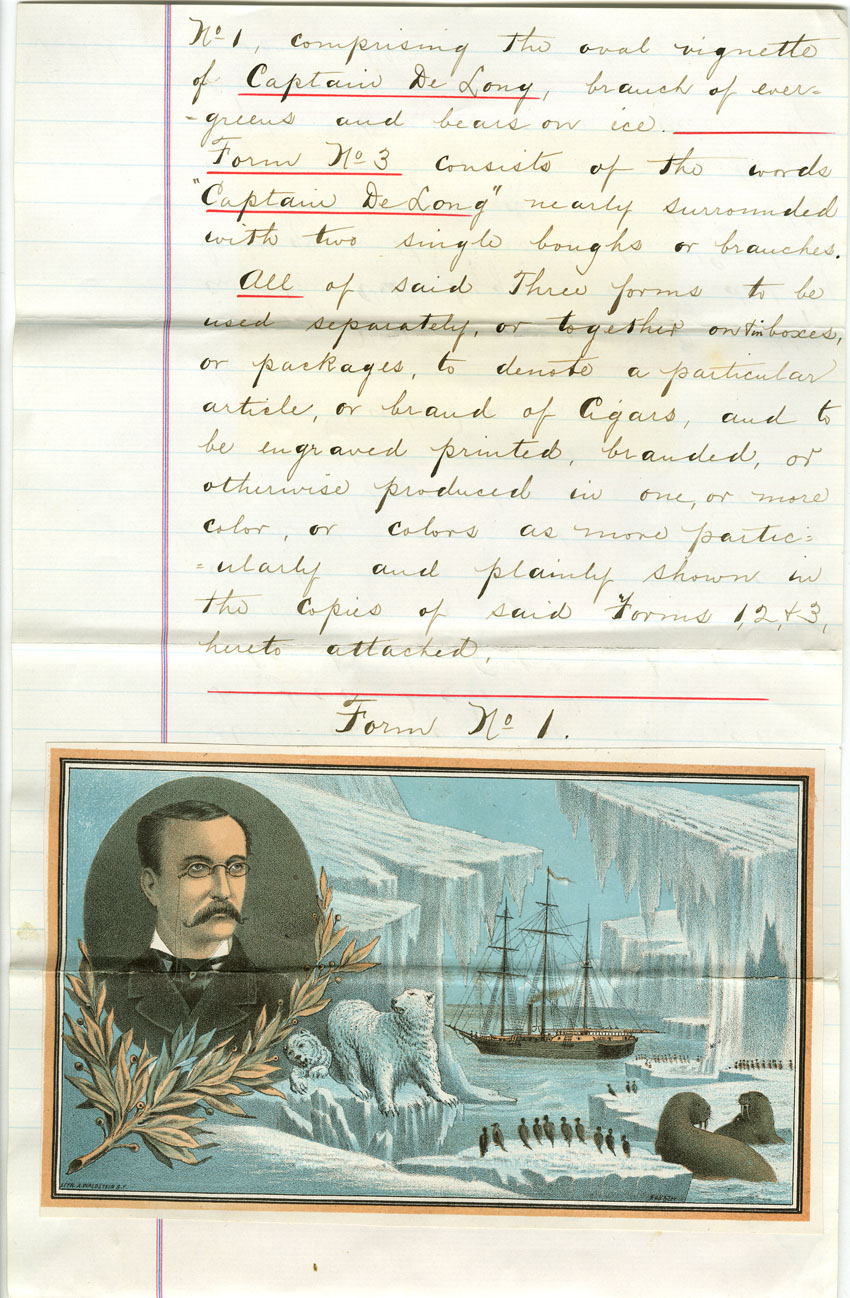 No 1, comprising the oval vignette
of Captain De Long, branch of ever=
-greens and bears on ice.
Form No 3 consists of the words
"Captain De Long" nearly surrounded
with two single boughs or branches.
All of said Three forms to be
used separately, or together on & in boxes,
or packages, to denote a particular
article, or brand of Cigars, and to
be engraved printed, branded, or
otherwise produced in one, or more
color, or colors as more partic=
=ularly and plainly shown in
the Copies of said Forms 1, 2, & 3,
hereto attached.
Form No 1.
LITH. A. WALDSTEIN S.F.